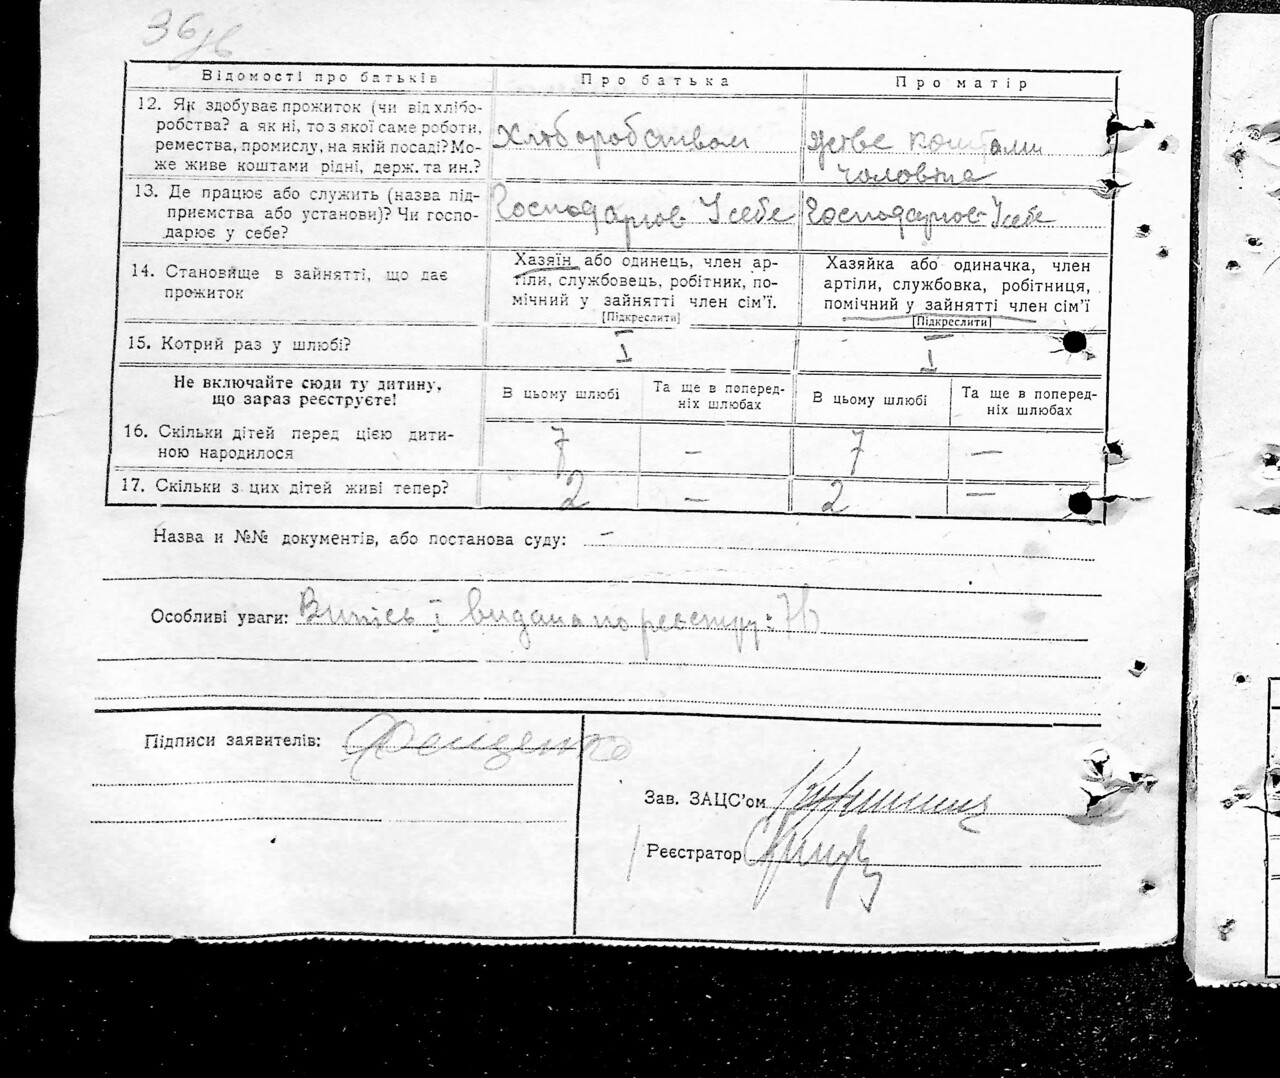 36
Відомості про батьків Про батька Про матір
12. Як здобуває прожиток (чи від хлібо-
робства? а як ні, то з якої саме роботи,
ремества, промислу, на якій посаді? Мо-
же живе коштами рідні, держ. та ин.?
Хліборобством
живе коштами
чоловіка
13. Де працює або служить (назва під-
приємства або установи)? Чи госпо-
дарює у себе?
Господарює У себе
Господарює У себе
14. Становище в зайнятті, що дає
прожиток
Хазяїн або одинець, член ар-
тіли, службовець, робітник, по-
мічний у зайнятті член сім'ї.
[Підкреслити]
Хазяйка або одиначка, член
артіли, службовка, робітниця,
помічний у зайнятті член сім'ї
[Підкреслити]
15. Котрий раз у шлюбі? I I
Не включайте сюди ту дитину,
що зараз реєструєте!
В цьому шлюбі
Та ще в поперед-
ніх шлюбах
В цьому шлюбі
Та ще в поперед-
ніх шлюбах
16. Скільки дітей перед цією дити-
ною народилося
7 — 7 —
17. Скільки з цих дітей живі тепер? 2 — 2 —
Назва и №№ документів, або постанова суду: —
Особливі уваги: Випись і видана по реєстру: 76
Підписи заявителів:
Зав. ЗАЦС'ом
Реєстратор